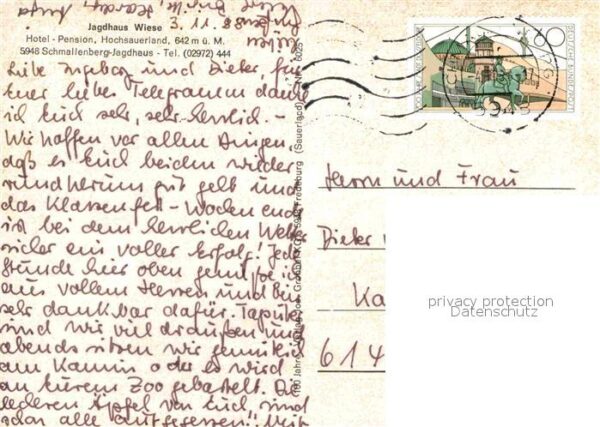 3. 11. 88
Jagdhaus Wiese
Hotel - Pension, Hochsauerland, 642 m ü. M.
5948 Schmallenberg-Jagdhaus - Tel. (02972) 444
Liebe Ingeborg und Dieter, für
Euer liebes Telegramm danke
ich Euch sehr, sehr herzlich. -
Wir hoffen vor allen Dingen,
daß es Euch beiden wieder
rundherum gut geht und
das Klassenfest-Wochenende
ist bei dem herrlichen Wetter
sicher ein voller Erfolg! Jede
Stunde hier oben genieße ich
aus vollem Herzen und bin
sehr dankbar dafür. Tagsüber
sind wir viel draußen und
abends sitzen wir gemütlich
am Kamin oder es wird
an Eurem Zoo gebastelt. Die
leckeren Äpfel von Euch sind
schon alle aufgegessen!! Mit
60
DEUTSCHE BUNDESPOST
Herrn und Frau
Dieter
Ka
614
privacy protection
Datenschutz